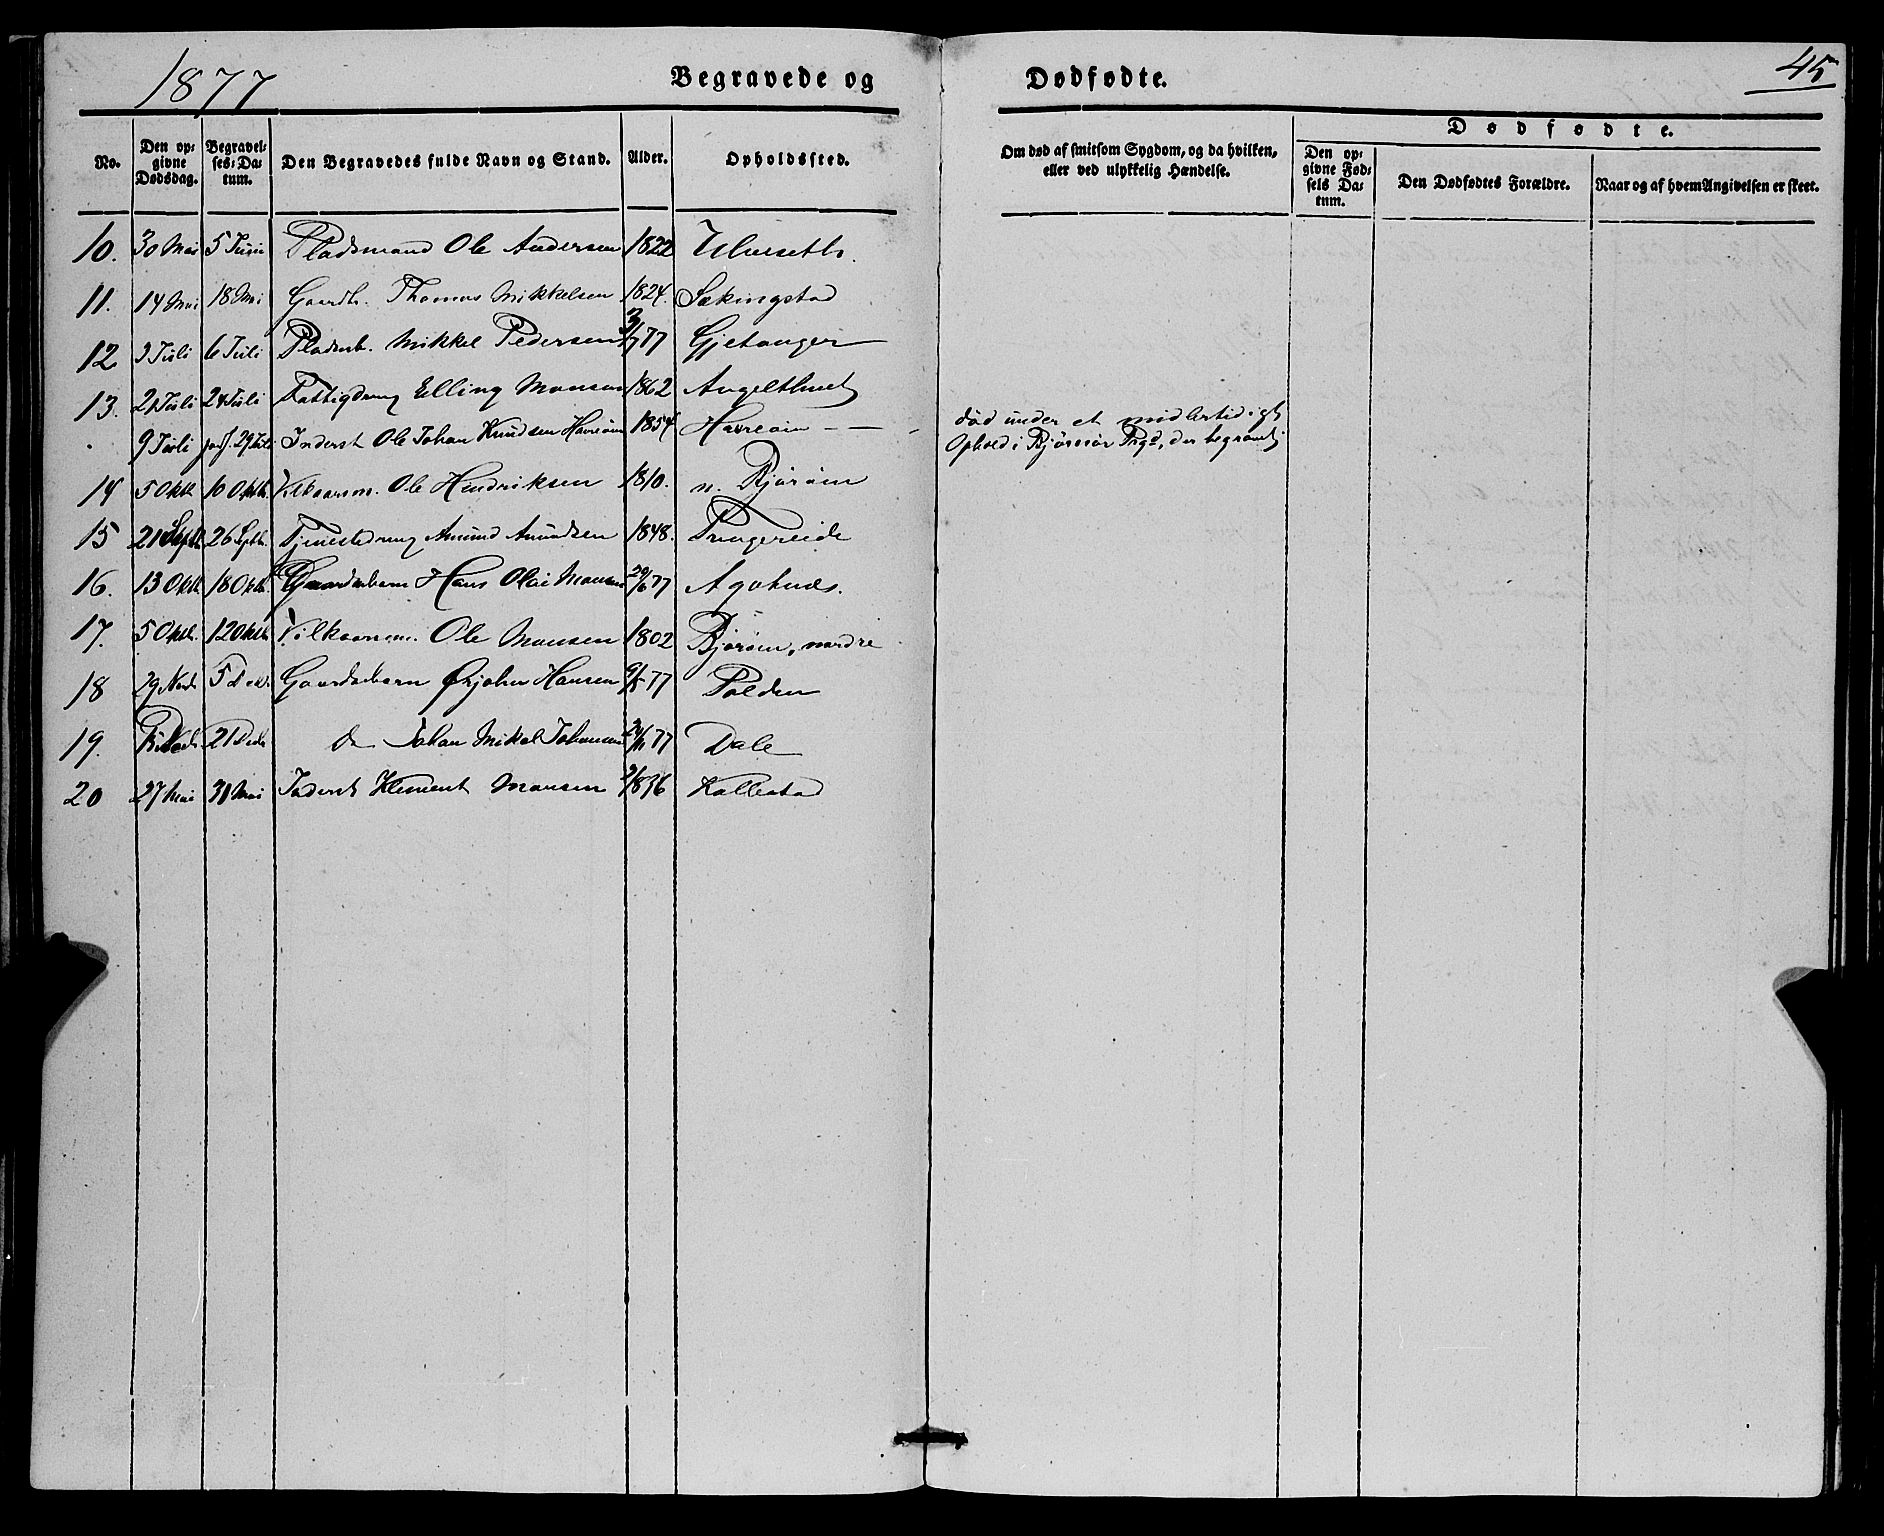 1877 Begravede og Dødfødte. 45
Dødfødte.
No. Den op= givne Dødsdag. Begravel= ses=Da= tum. Den Begravedes fulde Navn og Stand. Alder. Opholdssted. Om død af smitsom Sygdom, og da hvilken, eller ved ulykkelig Hændelse. Den op= givne Fød= sels Da= tum. Den Dødfødtes Forældre. Naar og af hvem Angivelsen er skeet.
10. 30 Mai 5 Juni Pladsmand Ole Andersen 1822 Ulveseth.
11. 14 Mai 18 Mai Gaardb. Thomas Mikkelsen 1824. Sækingstad
12 3 Juli 6 Juli Pladsb. Mikkel Pedersen 77 Gjetanger
13. 21 Juli 24 Juli Fattigdreng Elling Monsen 1862 Angelthvet
9 Juli 29 Juli Inderst Ole Johan Knudsen Havreøen 1854 Havreøen — — død under et midlertidigt
Ophold i Bjørnør Prgd, der begravet
14 5 Oktb 10 Oktb. Vilkaarsm. Ole Hendriksen 1810. n. Bjørøen
15 21 Septb 26 Septb. Tjenestedreng Amund Amundsen 1848. Tungereide
16. 13 Oktb 18 Oktb. Gaardsbarn Hans Olai Monsen 29/6 77 Agotnæs.
17. 5 Oktb. 12 Oktb Vilkaarsm. Ole Monsen 1802 Bjørøen, nordre
18 29 Novb 5 Decb. Gaardsbarn Ørjohn Hansen 9/5 77 Polden
19. 21 Decb do Johan Mikal Johannesen 77 Dale
20 27 Mai 31 Mai Inderst Klement Monsen 1836 Kallestad